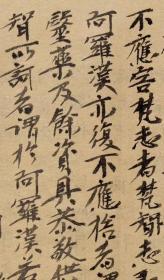 不應害梵志者梵智志
阿羅漢亦復不應捨者謂
醫藥及餘資具恭敬供
智所訶者謂於阿羅漢若